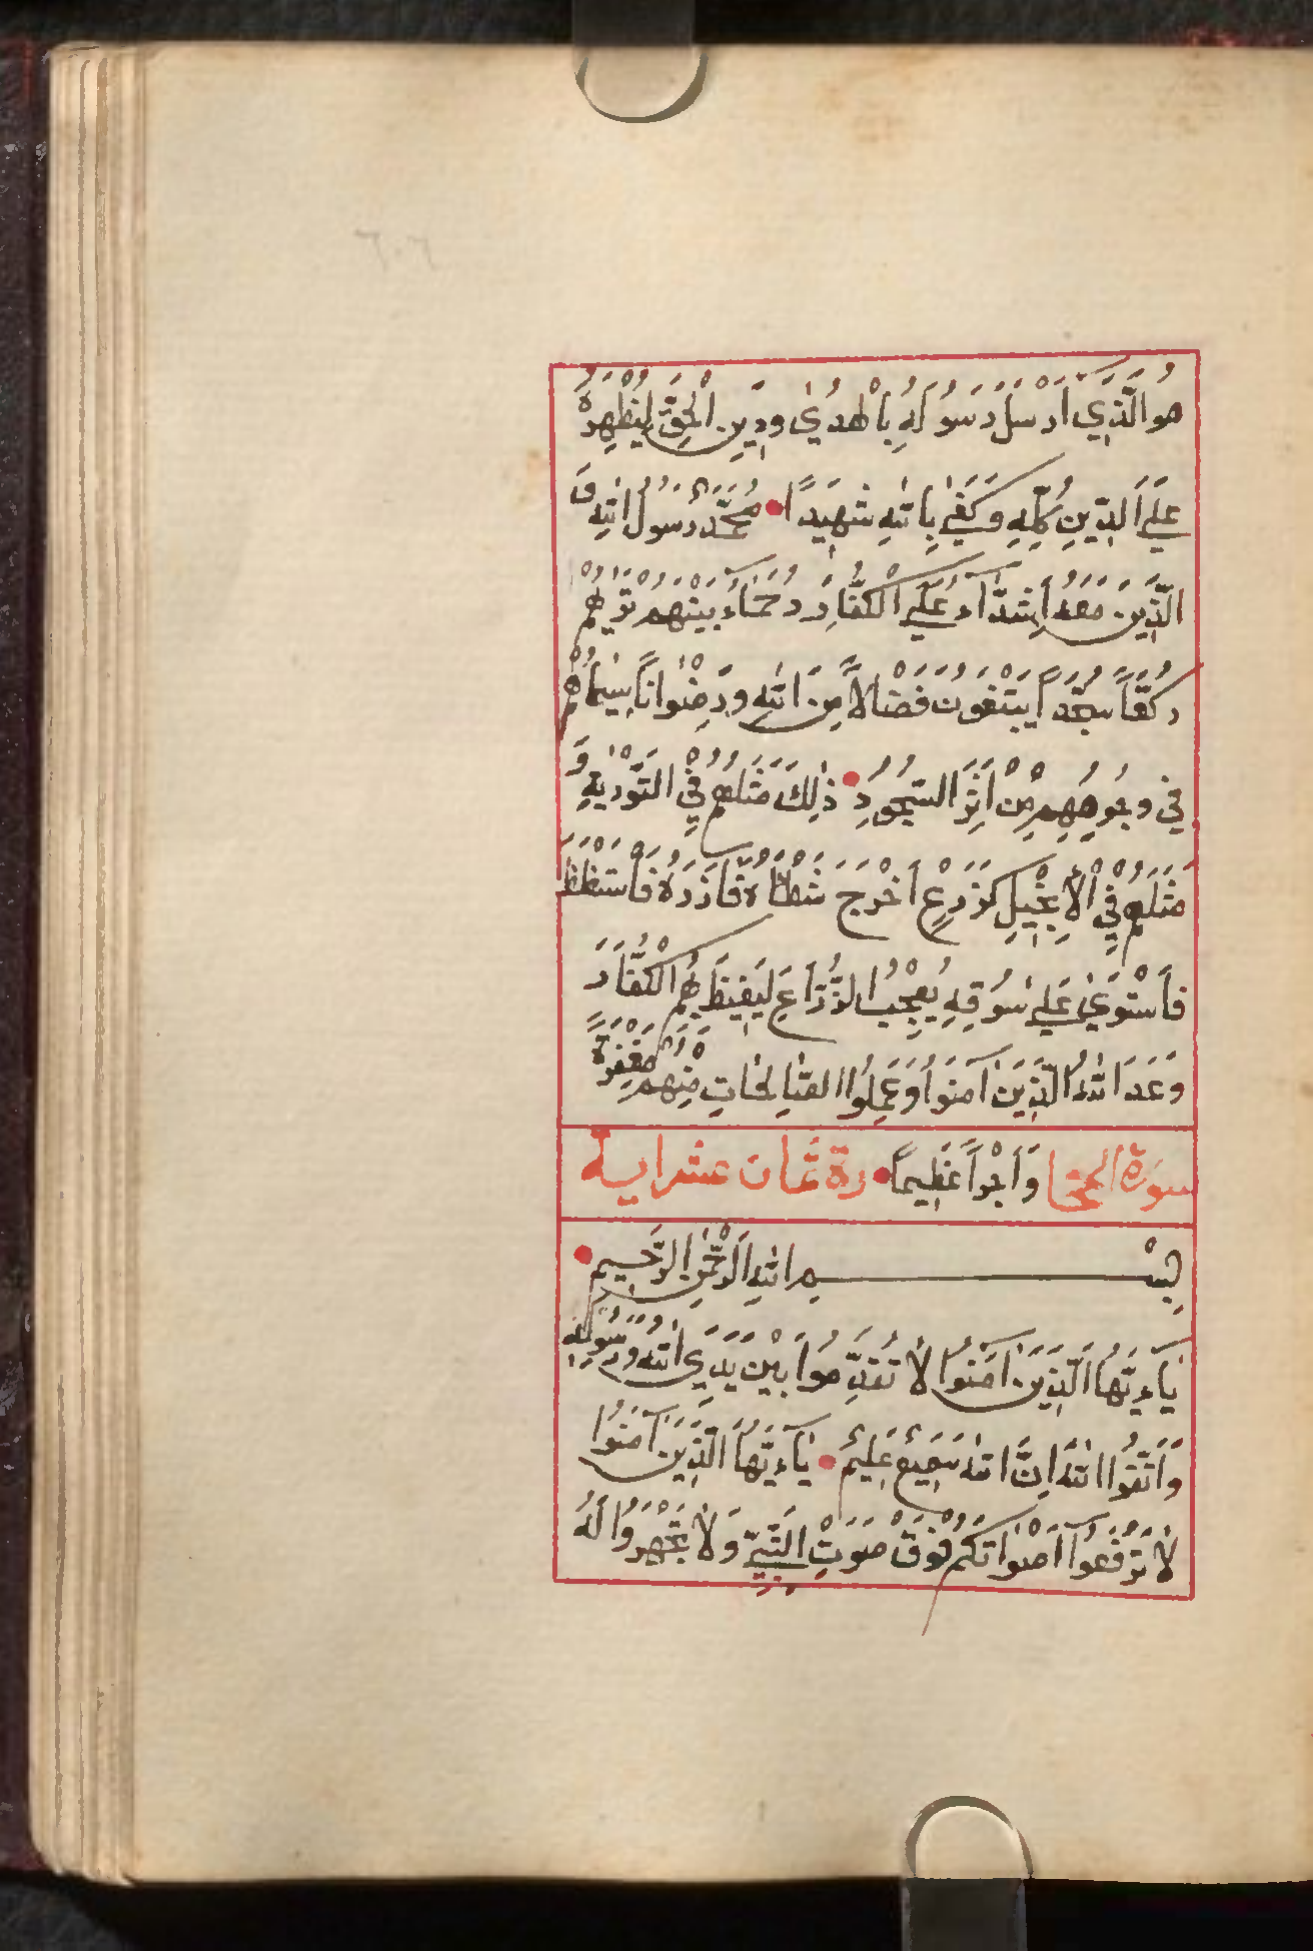 هُوَ الَّذِي أَرْسَلَ رَسُولَهُ بِالْهُدٰي وَدِينِ الْحَقِّ لِيُظْهِرَهُ
عَلَي الدِّينِ كُلِّهِ وَكَفٰي بِاللّٰهِ شَهِيدًا • مُحَمَّدٌ رَسُولُ اللّٰهِ وَ
الَّذِينَ مَعَهُ اَشِدَّآءُ عَلَي الْكُفَّارِ رُحَمَآءُ بَيْنَهُمْ تَرٰيهُمْ
رُكَّعًا سُجَّدًا يَبْتَغُونَ فَضْلاً مِنَ اللّٰهِ وَرِضْوَانًا سِيمَاهُمْ
فِي وُجُوهِهِمْ مِنْ اَثَرِ السُّجُودِ • ذٰلِكَ مَثَلُهُمْ فِي التَّوْرٰيةِ وَ
مَثَلُهُمْ فِي الْأِنْجِيلِ كَزَرْعٍ اَخْرَجَ شَطْأَهُ فَآزَرَهُ فَاسْتَظْظَ
فَاسْتَوٰي عَلٰي سُوقِهِ يُعْجِبُ الزُّرَّاعَ لِيَغِيظَ بِهِمُ الْكُفَّارَ
وَعَدَ اللّٰهُ الَّذِينَ آمَنُوا وَعَمِلُوا الصَّالِحَاتِ مِنْهُمْ مَغْفِرَةً
سورة الحجٰا وَاَجْرًا عَظِيمًا • رة ثمان عشر اية
بِسْمِ اللّٰهِ الرَّحْمٰنِ الرَّحِيمِ •
يٰآءيُّهَا الَّذِينَ آمَنُوا لاٰ تُقَدِّمُوا بَيْنَ يَدَيِ اللّٰهِ وَرَسُولِهِ
وَاتَّقُوا اللّٰهَ اِنَّ اللّٰهَ سَمِيعٌ عَلِيمٌ • يٰآءيُّهَا الَّذِينَ آمَنُوا
لاٰ تَرْفَعُوآ اَصْوَاتَكُمْ فَوْقَ صَوْتِ النَّبِيِّ وَلاٰ تَجْهَرُوا لَهُ